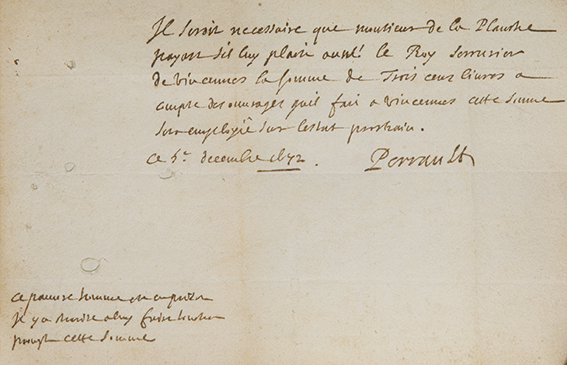 Il seroit necessaire que monsieur de la Planche
payast s'il luy plaist le Roy serrurier
de vincennes la somme de Trois cens livres a
compte des ouvrages qu'il fait a vincennes cette somme
sera employée sur l'estat prochain.
ce 5e. decembre 1672. Perrault
ce pauvre homme est en prison
Il y a à luy faire
cette somme